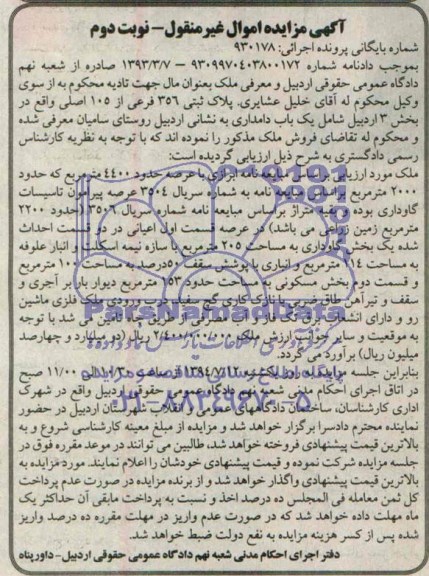 آگهی مزایده اموال غیرمنقول – نوبت دوم
شماره بایگانی پرونده اجرائی: ۹۳۰۱۷۸
بموجب دادنامه شماره ۹۳۰۹۹۷۰۴۰۳۸۰۰۱۷۲ – ۱۳۹۳/۳/۷ صادره از شعبه نهم
دادگاه عمومی حقوقی اردبیل و معرفی ملک بعنوان مال جهت تادیه محکوم به از سوی
وکیل محکوم له آقای خلیل عشایری. پلاک ثبتی ۳۵۶ فرعی از ۱۰۵ اصلی واقع در
بخش ۳ اردبیل شامل یک باب دامداری به نشانی اردبیل روستای سامیان معرفی شده
و محکوم له تقاضای فروش ملک مذکور را نموده اند که با توجه به نظریه کارشناس
رسمی دادگستری به شرح ذیل ارزیابی گردیده است:
ملک مورد ارزیابی برابر مبایعه نامه ابرازی با عرصه حدود ۴۴۰۰ مترمربع که حدود
۲۰۰۰ مترمربع براساس مبایعه نامه به شماره سریال ۳۵۰۴ عرصه پیرامون تاسیسات
گاوداری بوده و بقیه متراژ براساس مبایعه نامه شماره سریال ۳۵۰۶ (حدود ۲۲۰۰
مترمربع زمین زراعی می باشد) در عرصه قسمت اول اعیانی در دو قسمت احداث
شده یک بخش گاوداری به مساحت ۲۰۵ مترمربع با سازه نیمه اسکلت و انبار علوفه
به مساحت ۱۱۴ مترمربع و انباری با پوشش سقف ۵۰درصد به مساحت ۱۰۰ مترمربع
و قسمت دوم بخش مسکونی به مساحت حدود ۱۵۳ مترمربع دیوار بار بر آجری و
سقف و تیرآهن طاق ضربی با نازک کاری گچ سفید، درب ورودی ملک فلزی ماشین
رو و دارای انشعاب برق است گاز و آب مصرفی از طریق چاه تامین می شد با توجه
به موقعیت و سایر جوانب ارزش ملک ۲/۴۰۰/۰۰۰/۰۰۰ ریال (دو میلیارد و چهارصد
میلیون ریال) برآورد می گردد.
بنابراین جلسه مزایده در روز یکشنبه ۱۳۹۴/۷/۱۲ از ساعت ۱۰/۳۰ الی ۱۱/۰۰ صبح
در اتاق اجرای احکام مدنی شعبه نهم دادگاه عمومی حقوقی اردبیل واقع در شهرک
اداری کارشناسان، ساختمان دادگاههای عمومی و انقلاب شهرستان اردبیل در حضور
نماینده محترم دادسرا برگزار خواهد شد و مزایده از مبلغ معینه کارشناسی شروع و به
بالاترین قیمت پیشنهادی فروخته خواهد شد، طالبین می توانند در موعد مقرره فوق در
جلسه مزایده شرکت نموده و قیمت پیشنهادی خودشان را اعلام نمایند. مورد مزایده به
بالاترین قیمت پیشنهادی واگذار خواهد شد و از برنده مزایده در صورت عدم پرداخت
کل ثمن معامله فی المجلس ده درصد اخذ و نسبت به پرداخت مابقی آن حداکثر یک
ماه مهلت داده خواهد شد که در صورت عدم واریز در مهلت مقرره ده درصد واریز
شده پس از کسر هزینه مزایده به نفع دولت ضبط خواهد شد.
دفتر اجرای احکام مدنی شعبه نهم دادگاه عمومی حقوقی اردبیل– داورپناه
ParsNamadData
۰۲۱-۸۸۳۴۹۶۷۰-۵